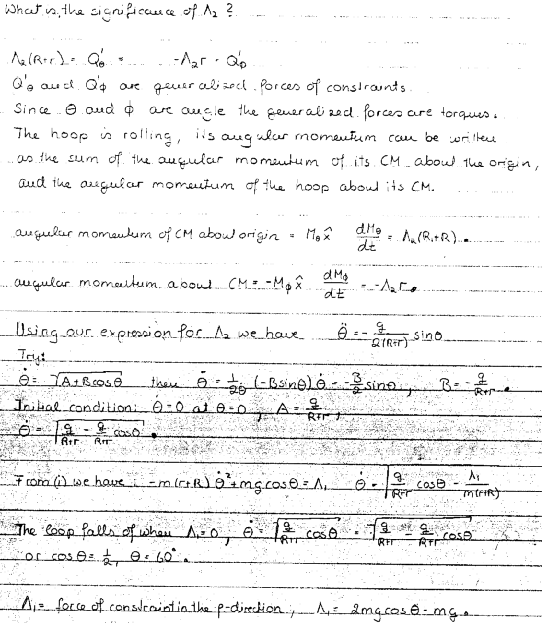 What is the significance of Λ₂ ?
Λ₂(R+r) = Q'θ = -Λ₂r = Q'ϕ
Q'θ and Q'ϕ are generalized forces of constraints.
Since θ and ϕ are angle the generalized forces are torques.
The hoop is rolling, its angular momentum can be written
as the sum of the angular momentum of its CM about the origin,
and the angular momentum of the hoop about its CM.
angular momentum of CM about origin = Mθ x̂ dMθ/dt = Λ₂(R+R).
angular momentum about CM = -Mϕ x̂ dMϕ/dt = -Λ₂r.
Using our expression for Λ₂ we have θ̈ = - g/2(R+r) sinθ
Try:
θ̇ = √A+Bcosθ then θ̈ = 1/2θ̇ (-Bsinθ) θ̇ = -B/2 sinθ, B = - g/R+r.
Initial condition: θ̇=0 at θ=0, A = g/R+r,
θ̇ = √g/R+r - g/R+r cosθ.
From (i) we have: -m(r+R) θ̇² + mg cosθ = Λ₁ θ̇ = √g/R+r cosθ - Λ₁/m(r+R)
The loop falls of when Λ₁=0, θ̇ = √g/R+r cosθ = √g/R+r - g/R+r cosθ
or cosθ = 1/2, θ = 60°.
Λ₁ = force of constraint in the ρ-direction, Λ₁ = 2mg cosθ - mg.